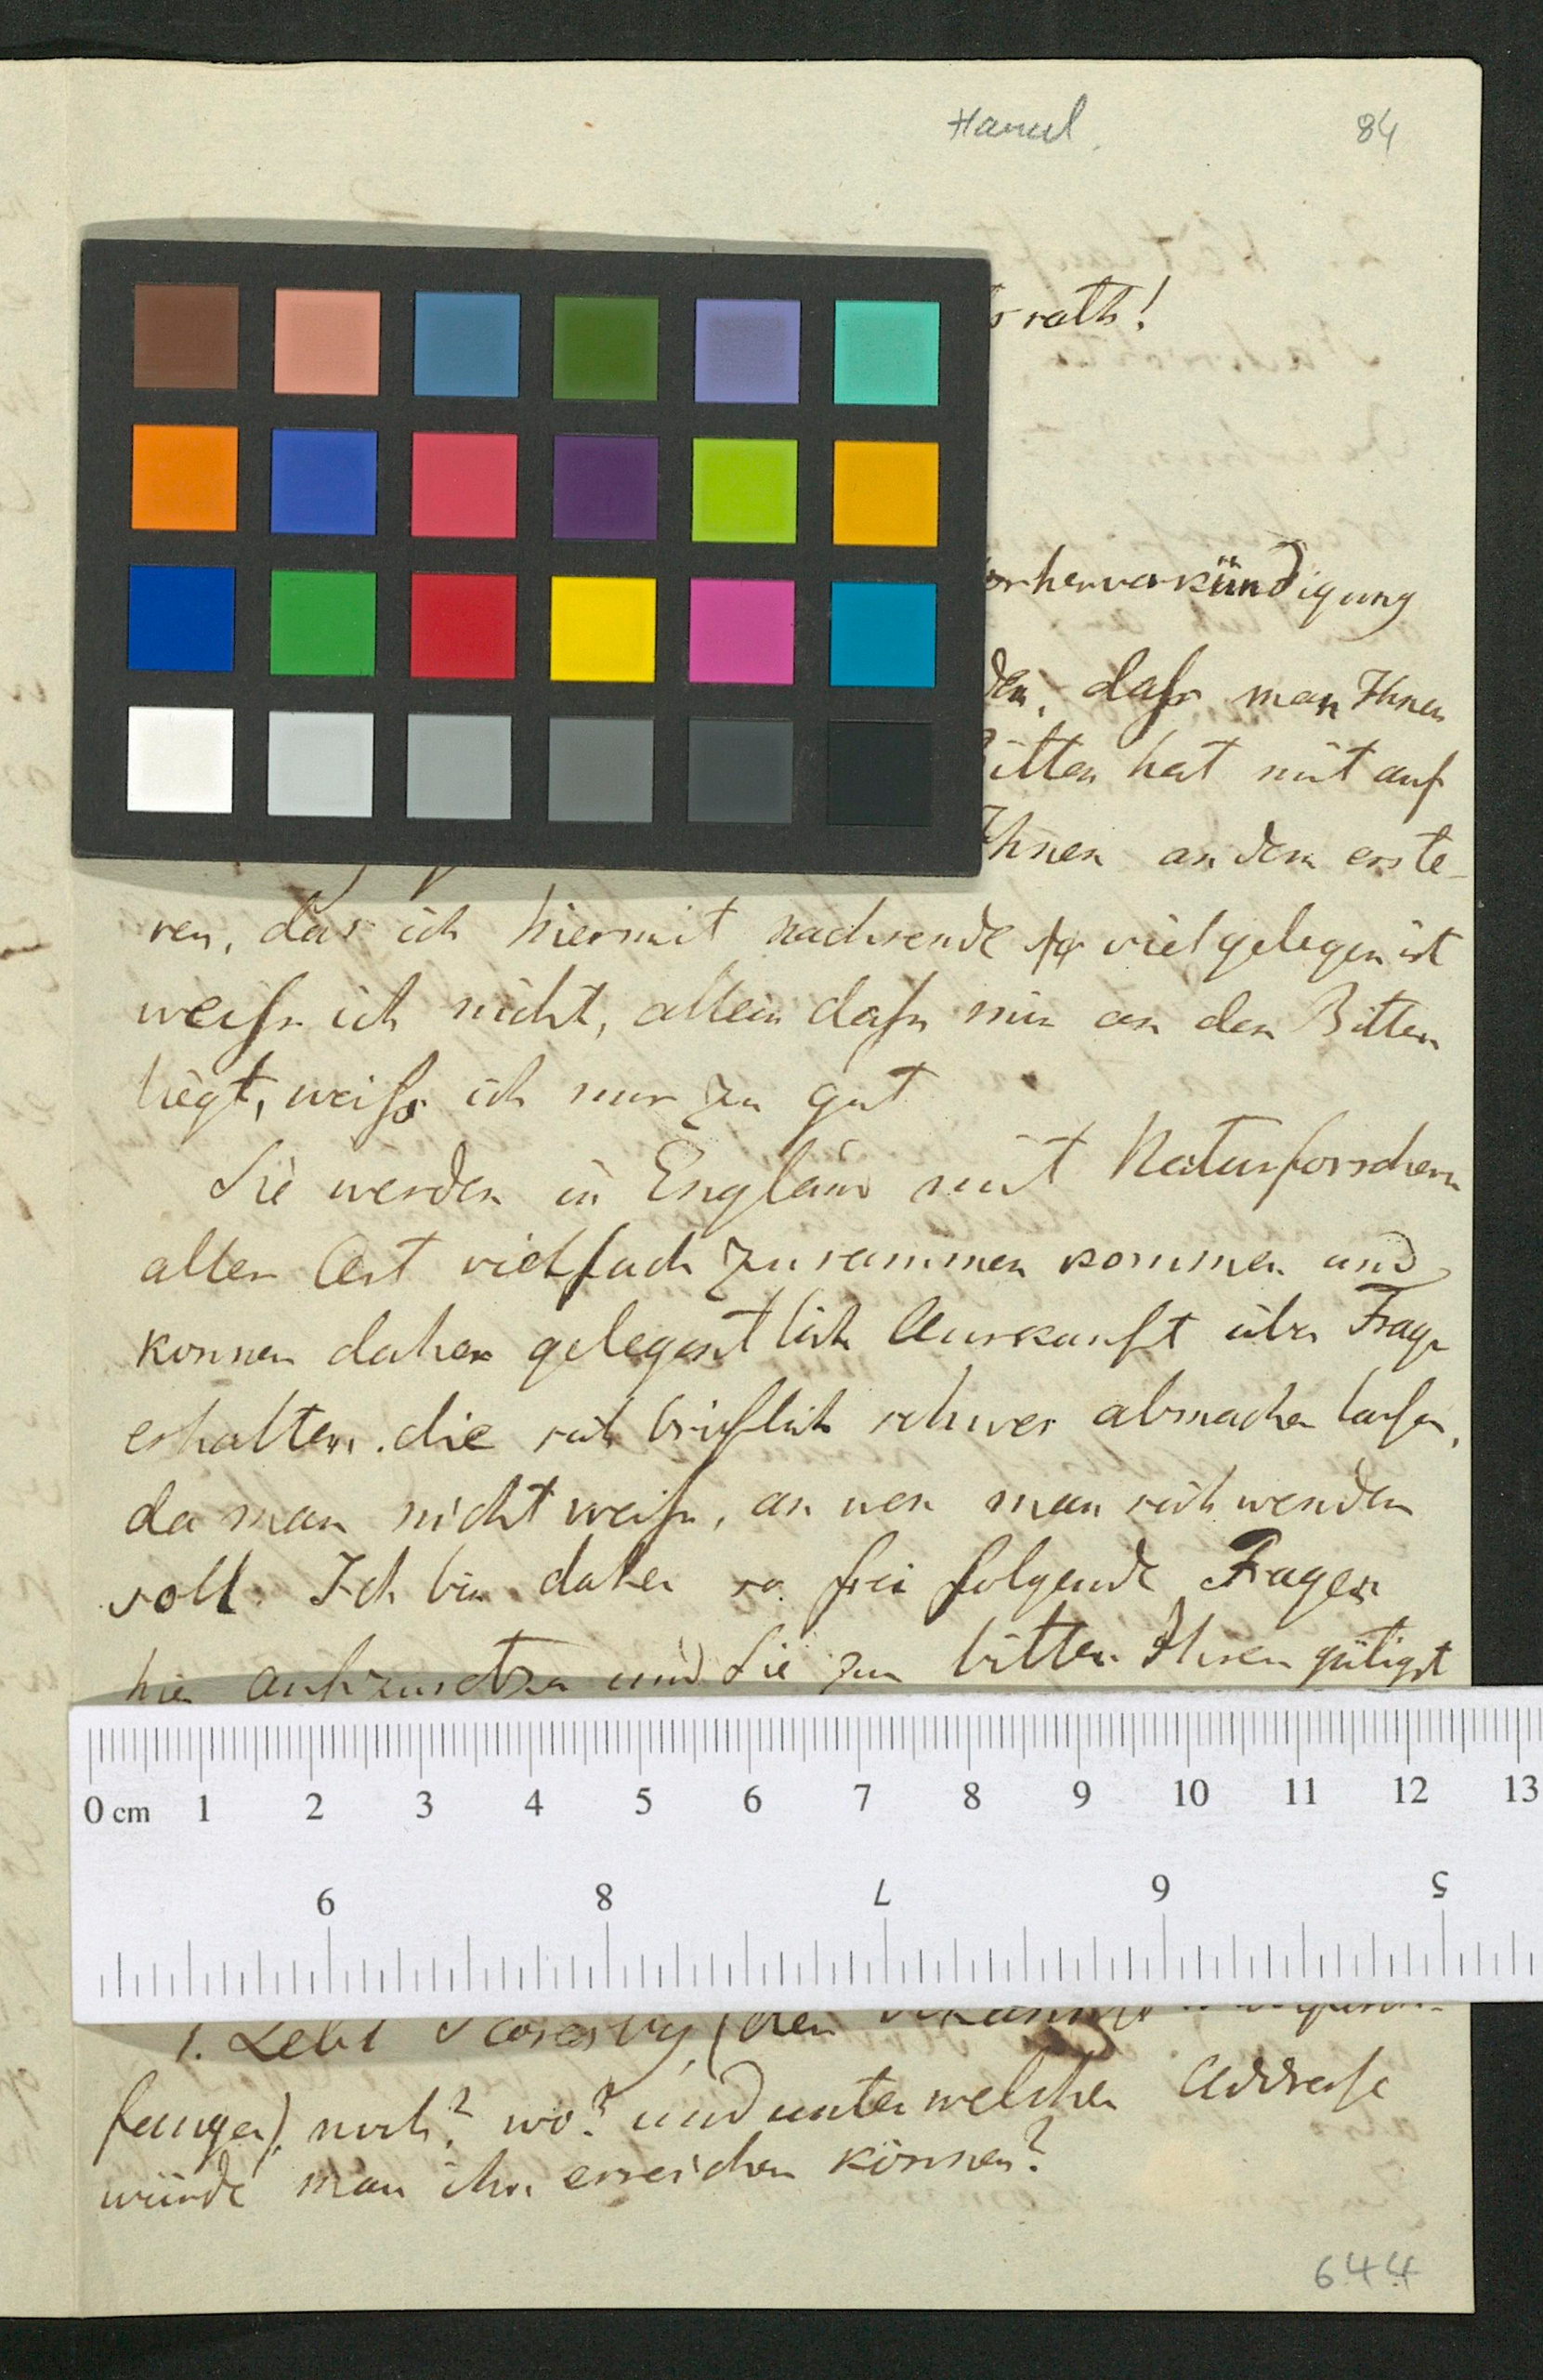 84
rath!
vorherverkündigung
den, daß man Ihnen
Bitten hat mit auf
Ihnen an dem erste-
ren, das ich hiermit nachsende viel gelegen ist
weiß ich nicht, allein daß mir an den Bitten
liegt, weiß ich nur zu gut
Sie werden in England mit Naturforschern
aller Art vielfach zusammen kommen und
konnen daher gelegentlich Auskunft über Frage
erhalten, die sich brieflich schwer abmachen laßen,
da man nicht weiß, an wen man sich wenden
soll. Ich bin daher so frei folgende Fragen
hier aufzusetzen und Sie zu bitten Ihren gütigst
0 cm 1 2 3 4 5 6 7 8 9 10 11 12 13
9 8 7 6 5
1. Lebt Scoresby (der
fänger), noch? wo? und unter welcher Addresse
würde man ihn erreichen können?
644